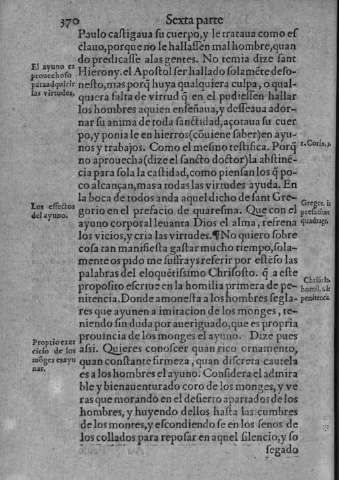 370 Sexta parte
Paulo castigaua su cuerpo, y le trataua como es
clauo, porque no le hallassen mal hombre, quan
do predicasse alas gentes. No temia dize sant
El ayuno es
prouechoso
para adquirir
las virtudes.
Hierony. el Apostol ser hallado solamẽte deso-
nesto, mas porq̃ huya qualquiera culpa, o qual-
quiera falta de virtud q̃ en el pudiessen hallar
los hombres aquien enseñaua, y desseaua ador-
nar su anima de toda sanctidad, açotaua su cuer
po, y ponia le en hierros (cõuiene saber) en ayu-
nos y trabajos. Como el mesmo testifica. Porq̃
no aprouecha (dize el sancto doctor) la abstinẽ-
cia para sola la castidad, como piensan los q̃ po-
co alcançan, mas a todas las virtudes ayuda. En
la boca de todos anda aquel dicho de sant Gre-
Los effectos
del ayuno.
gorio en el prefacio de quaresma. Que con el
ayuno corporal leuanta Dios el alma, refrena
los vicios, y cria las virtudes. ¶No quiero sobre
cosa tan manifiesta gastar mucho tiempo, sola-
mente os pido me suffrays referir por estẽso las
palabras del eloquẽtissimo Chrisosto. q̃ a este
proposito escriue en la homilia primera de pe-
nitencia. Donde amonesta a los hombres segla-
res que ayunen a imitacion de los monges, te-
niendo sin duda por aueriguado, que es propria
prouincia de los monges el ayuno. Dize pues
Proprio exer
cicio de los
mõges es ayu
nar.
assi. Quieres conoscer quan rico ornamento,
quan constante firmeza, quan discreta cautela
es a los hombres el ayuno. Considera el admira
ble y bienauenturado coro de los monges, y ve
ras que morando en el desierto apartados de los
hombres, y huyendo dellos hasta las cumbres
de los montes, y escondiendo se en los senos de
los collados para reposar en aquel silencio, y so
segado